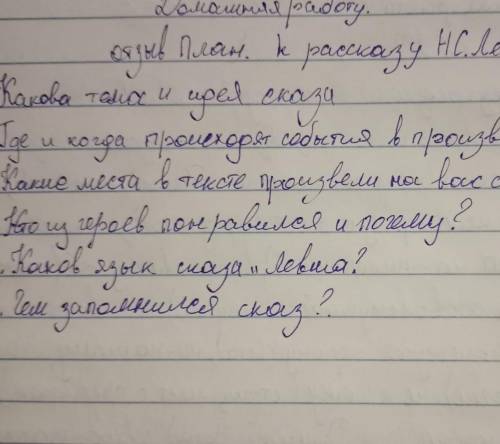 Домашняя работу.
отзыв План. к рассказу Н.С. Ле
Какова тема и идея сказа
Где и когда происходят события в произв
Какие места в тексте произвели на вас с
Кто из героев понравился и почему?
Каков язык сказа „Левша?
Чем запомнился сказ?